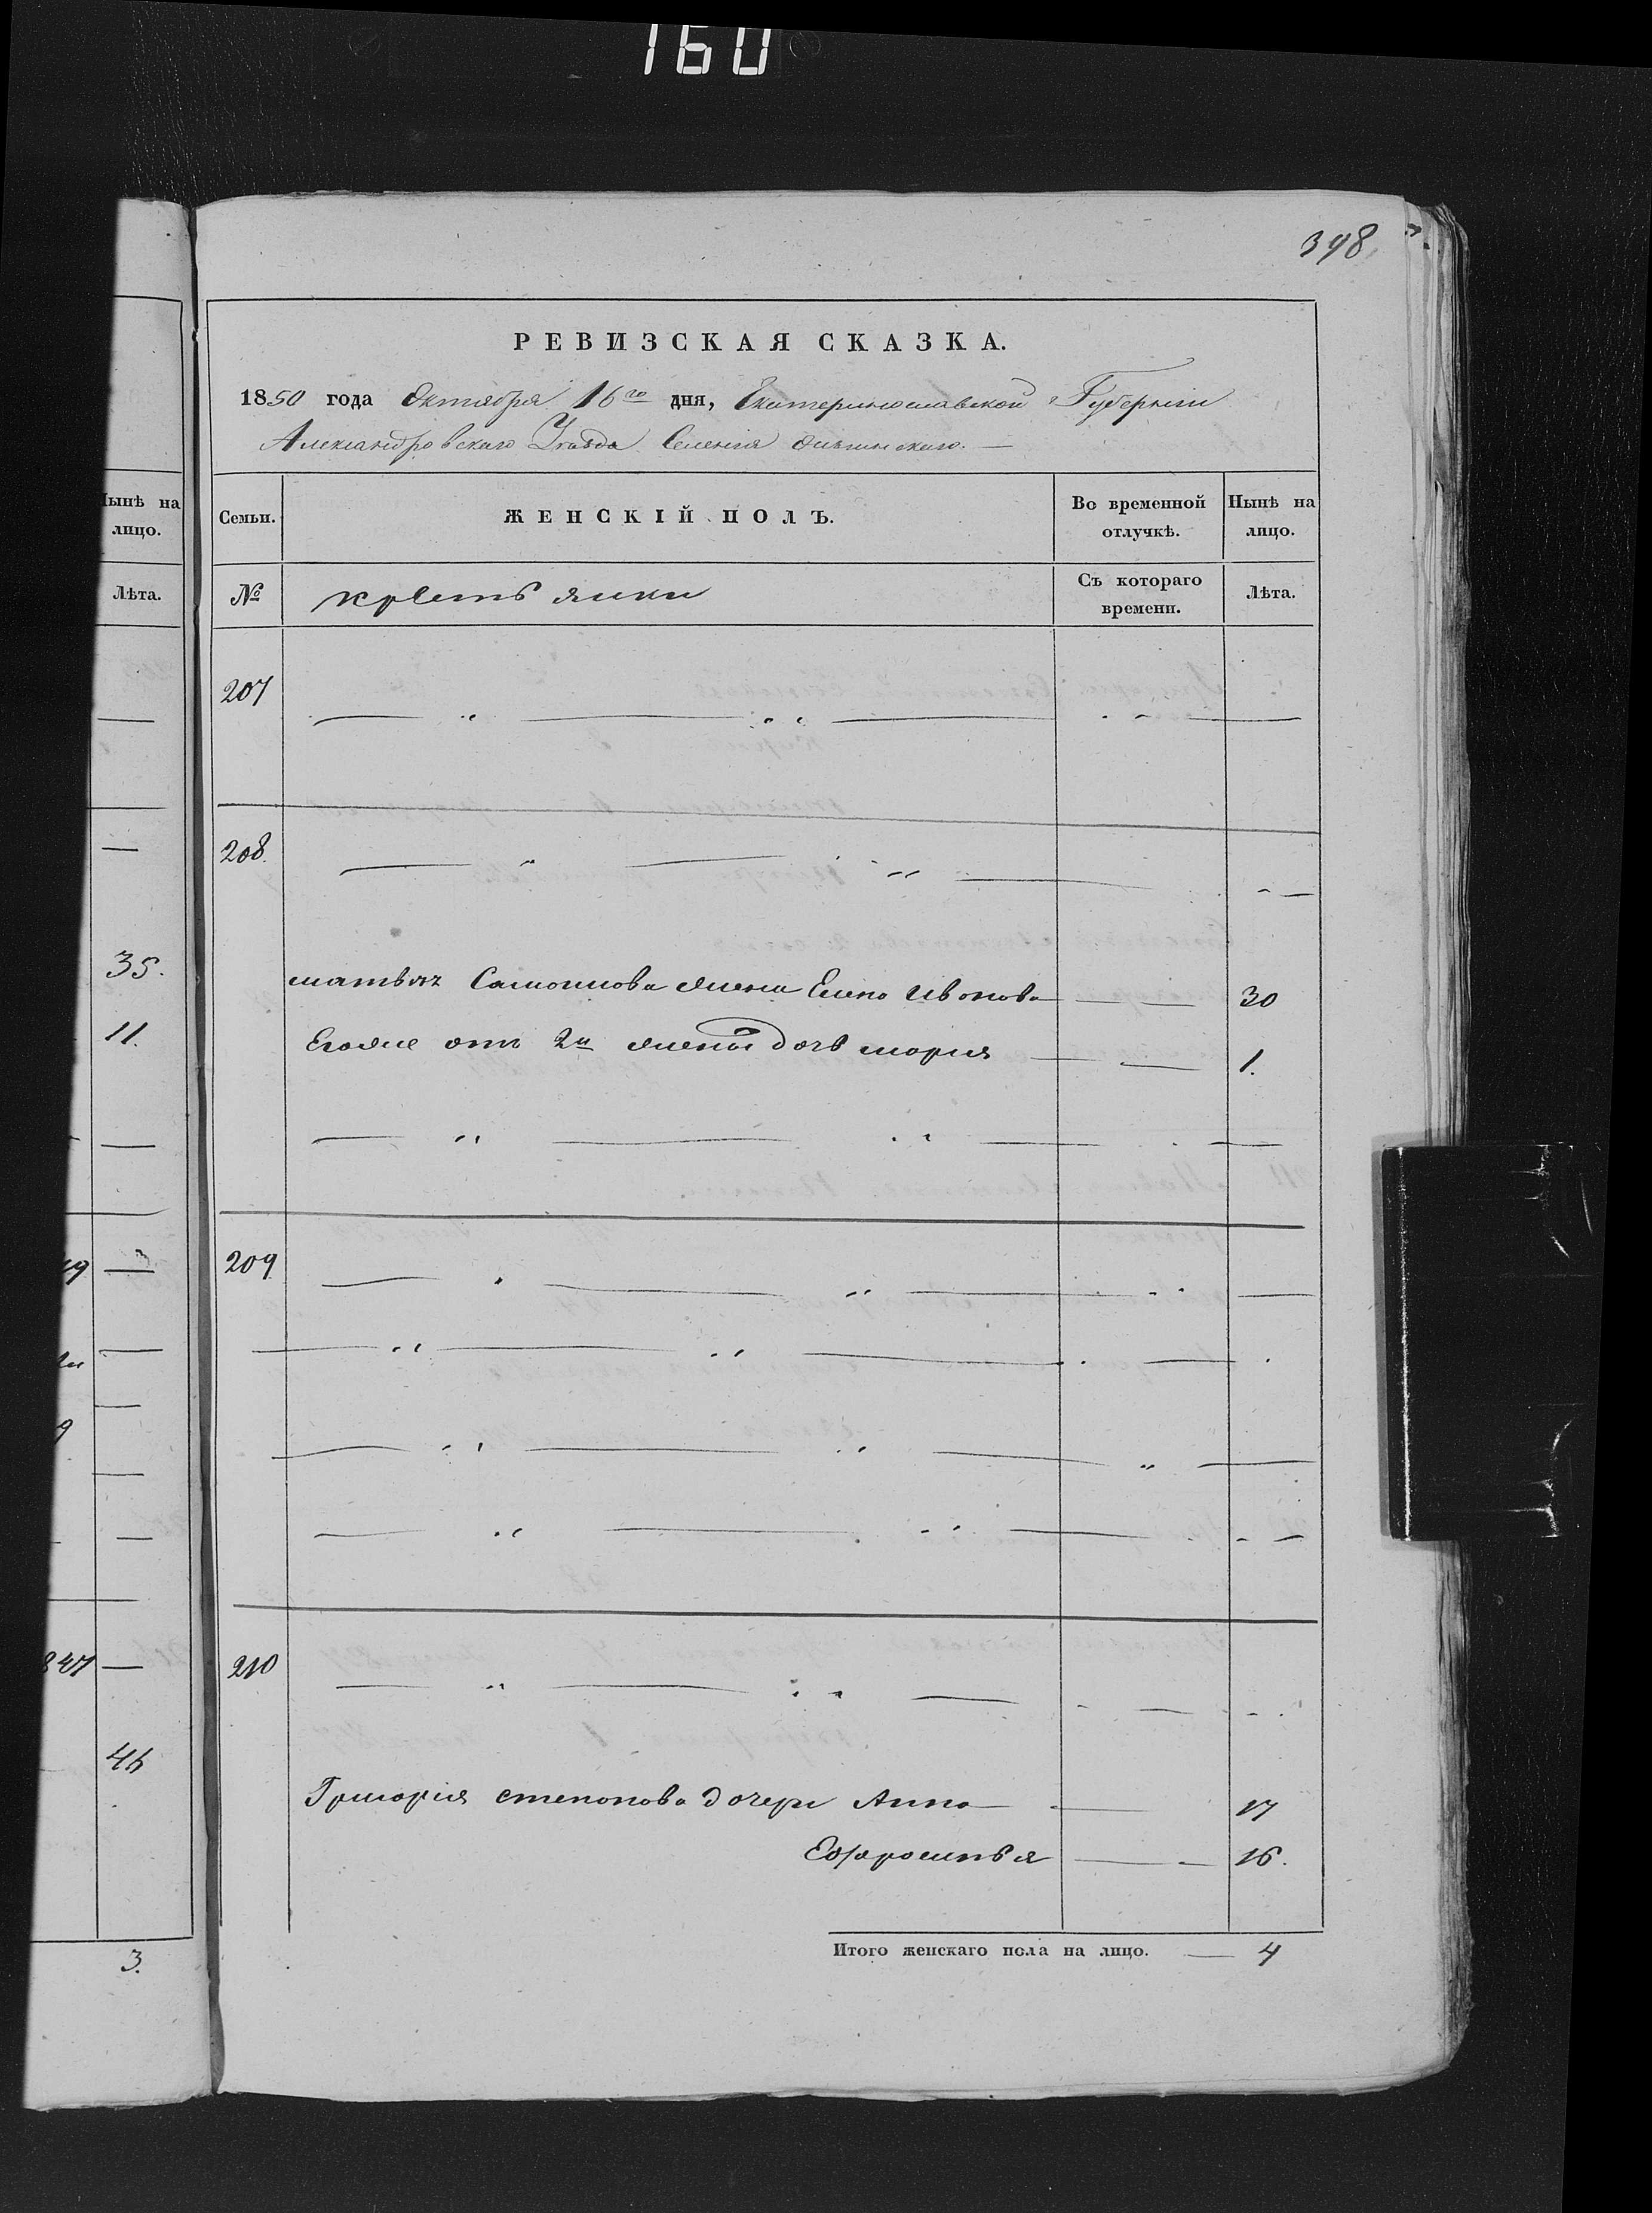 160
398
РЕВИЗСКАЯ СКАЗКА.
1850 года Октября 16го дня, Екатеринославской Губернiи
Александровскаго Уезда Селенiя
Нынѣ на лицо.
Семьи.
ЖЕНСКIЙ ПОЛЪ.
Во временной отлучкѣ.
Нынѣ на лицо.
Лѣта.
№
крестьянки
Съ котораго времени.
Лѣта.
207
208.
35.
матвѣя Самойлова жена Елена Иванова — 30
11.
Егоже отъ 2й жены дочь мария — 1.
209
847
210
46
Григория степанова дочери Анна — 17
Ефросинья — 16.
Итого женскаго пола на лицо. — 4
3.